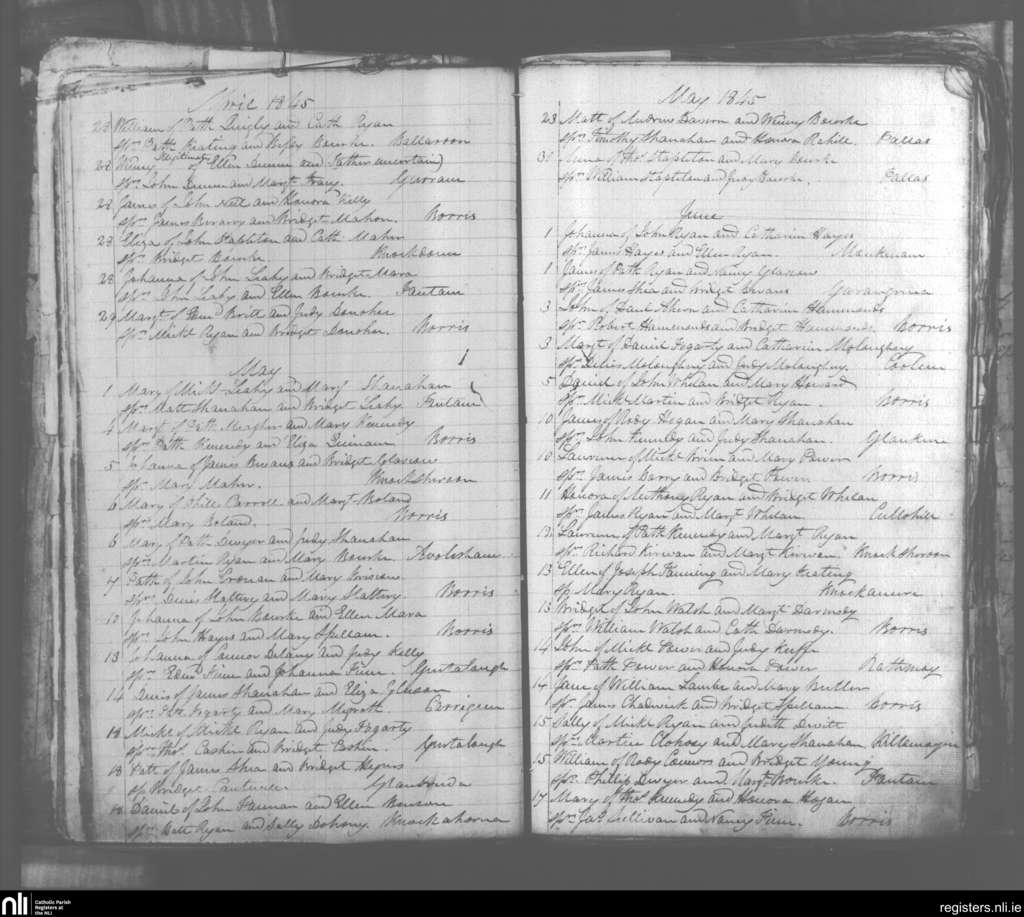 April 1845
23 William of Patt Quigly and Cath Ryan
Sprs Patt Keating and Betsy Bourke. Ballaroon
28 Winny Illegitimate of Ellen Quinn and Father uncertain
Sprs John Quinn and Margt Gurrane
28 James of John Neil and Honora Kelly
Sprs James and Bridget Mahon. Borris
23 Eliza of John Stapleton and Cath Maher
Spr Bridget Bourke
28 Johanna of John Leahy and Bridget Mara
Sprs John Leahy and Ellen Bourke. Fantain
29 Margt of Edmd Britt and Judy Donoher
Sprs Michl Ryan and Bridget Donoher. Borris
May
1 Mary of Michl Leahy and Mary Shanahan
Sprs Matt Shanahan and Bridget Leahy. Fantain
4 Margt of Patt Meagher and Mary Kennedy
Sprs Patt Kennedy and Eliza Borris
5 Johanna of James and Bridget Gleeson
Spr Mary Maher. Knocksheroon
6 Mary of Phill Carroll and Margt Boland
Spr Mary Boland. Borris
6 Mary of Patt Dwyer and Judy Shanahan
Sprs Martin Ryan and Mary Bourke
7 Patt of John and Mary
Sprs Denis Slattery and Mary Slattery. Borris
10 Johanna of John Bourke and Ellen Mara
Sprs John Hayes and Mary Spellam. Borris
13 Johanna of Connor Delany and Judy Kelly
Sprs Edmd Finn and Johanna Finn. Gurtalough
14 of James Shanahan and Eliza Gleeson
Sprs Fogarty and Mary Carrigeen
18 Michl of Michl Ryan and Judy Fogarty
Sprs Thos Cashin and Bridget Gurtalough
18 Patt of James Shea and Bridget
Sp Bridget
Daniel of John and Ellen
Sprs Patt Ryan and Sally Dohony. Knockahorna
May 1845
23 Matt of Andrew and Winny Bourke
Sprs Timothy Shanahan and Honora Rahill. Pallas
30 Anna of Thos Stapleton and Mary Bourke
Sprs William Stapleton and Judy Bourke. Pallas
June
1 Johanna of John Ryan and Catharin Hayes
Sprs James Hayes and Ellen Ryan.
1 James of Patt Ryan and Nancy Gleeson
Sprs James Shea and Bridget
3 John of Danl Ahern and Catharin Hammonds
Sprs Robert Hammonds and Bridget Hammonds. Borris
3 Margt of Daniel Fogarty and Catharin Molaughny
Sprs Denis Molaughny and Judy Molaughny. Cooleen
5 Daniel of John Whelan and Mary Howard
Sprs Michl Martin and Bridget Ryan. Borris
10 James of Rody Hogan and Mary Shanahan
Sprs John and Judy Shanahan.
10 Laurence of Michl and Mary Power
Sprs James Barry and Bridget Power Borris
11 Honora of Anthony Ryan and Bridget Whelan
Sprs James Ryan and Margt Whelan. Cullohill
12 Laurence of Patt Kennedy and Margt Ryan
Sprs Richard Kirwan and Margt Kirwan. Knocksheroon
13 Ellen of Joseph Fanning and Mary Keating
Sp Mary Ryan.
13 Bridget of John Walsh and Margt Darmody
Sprs William Walsh and Cath Darmody. Borris
14 John of Michl Power and Judy Keeffe
Sprs Patt Power and Honora Power Rathmoy
14 Jane of William Lambe and Mary Butler
Sprs James Chadwick and Bridget Spellam. Borris
15 Sally of Michl Ryan and Judith Dwitt
Sprs Martin Clohosy and Mary Shanahan. Killamoyne
15 William of Rody Connors and Bridget Young
Sprs Philip Dwyer and Margt Bourke. Fantain
17 Mary of Thos Kennedy and Honora Hogan
Sprs Jas Sullivan and Nancy Finn. Borris
nli Catholic Parish Registers at the NLI
registers.nli.ie